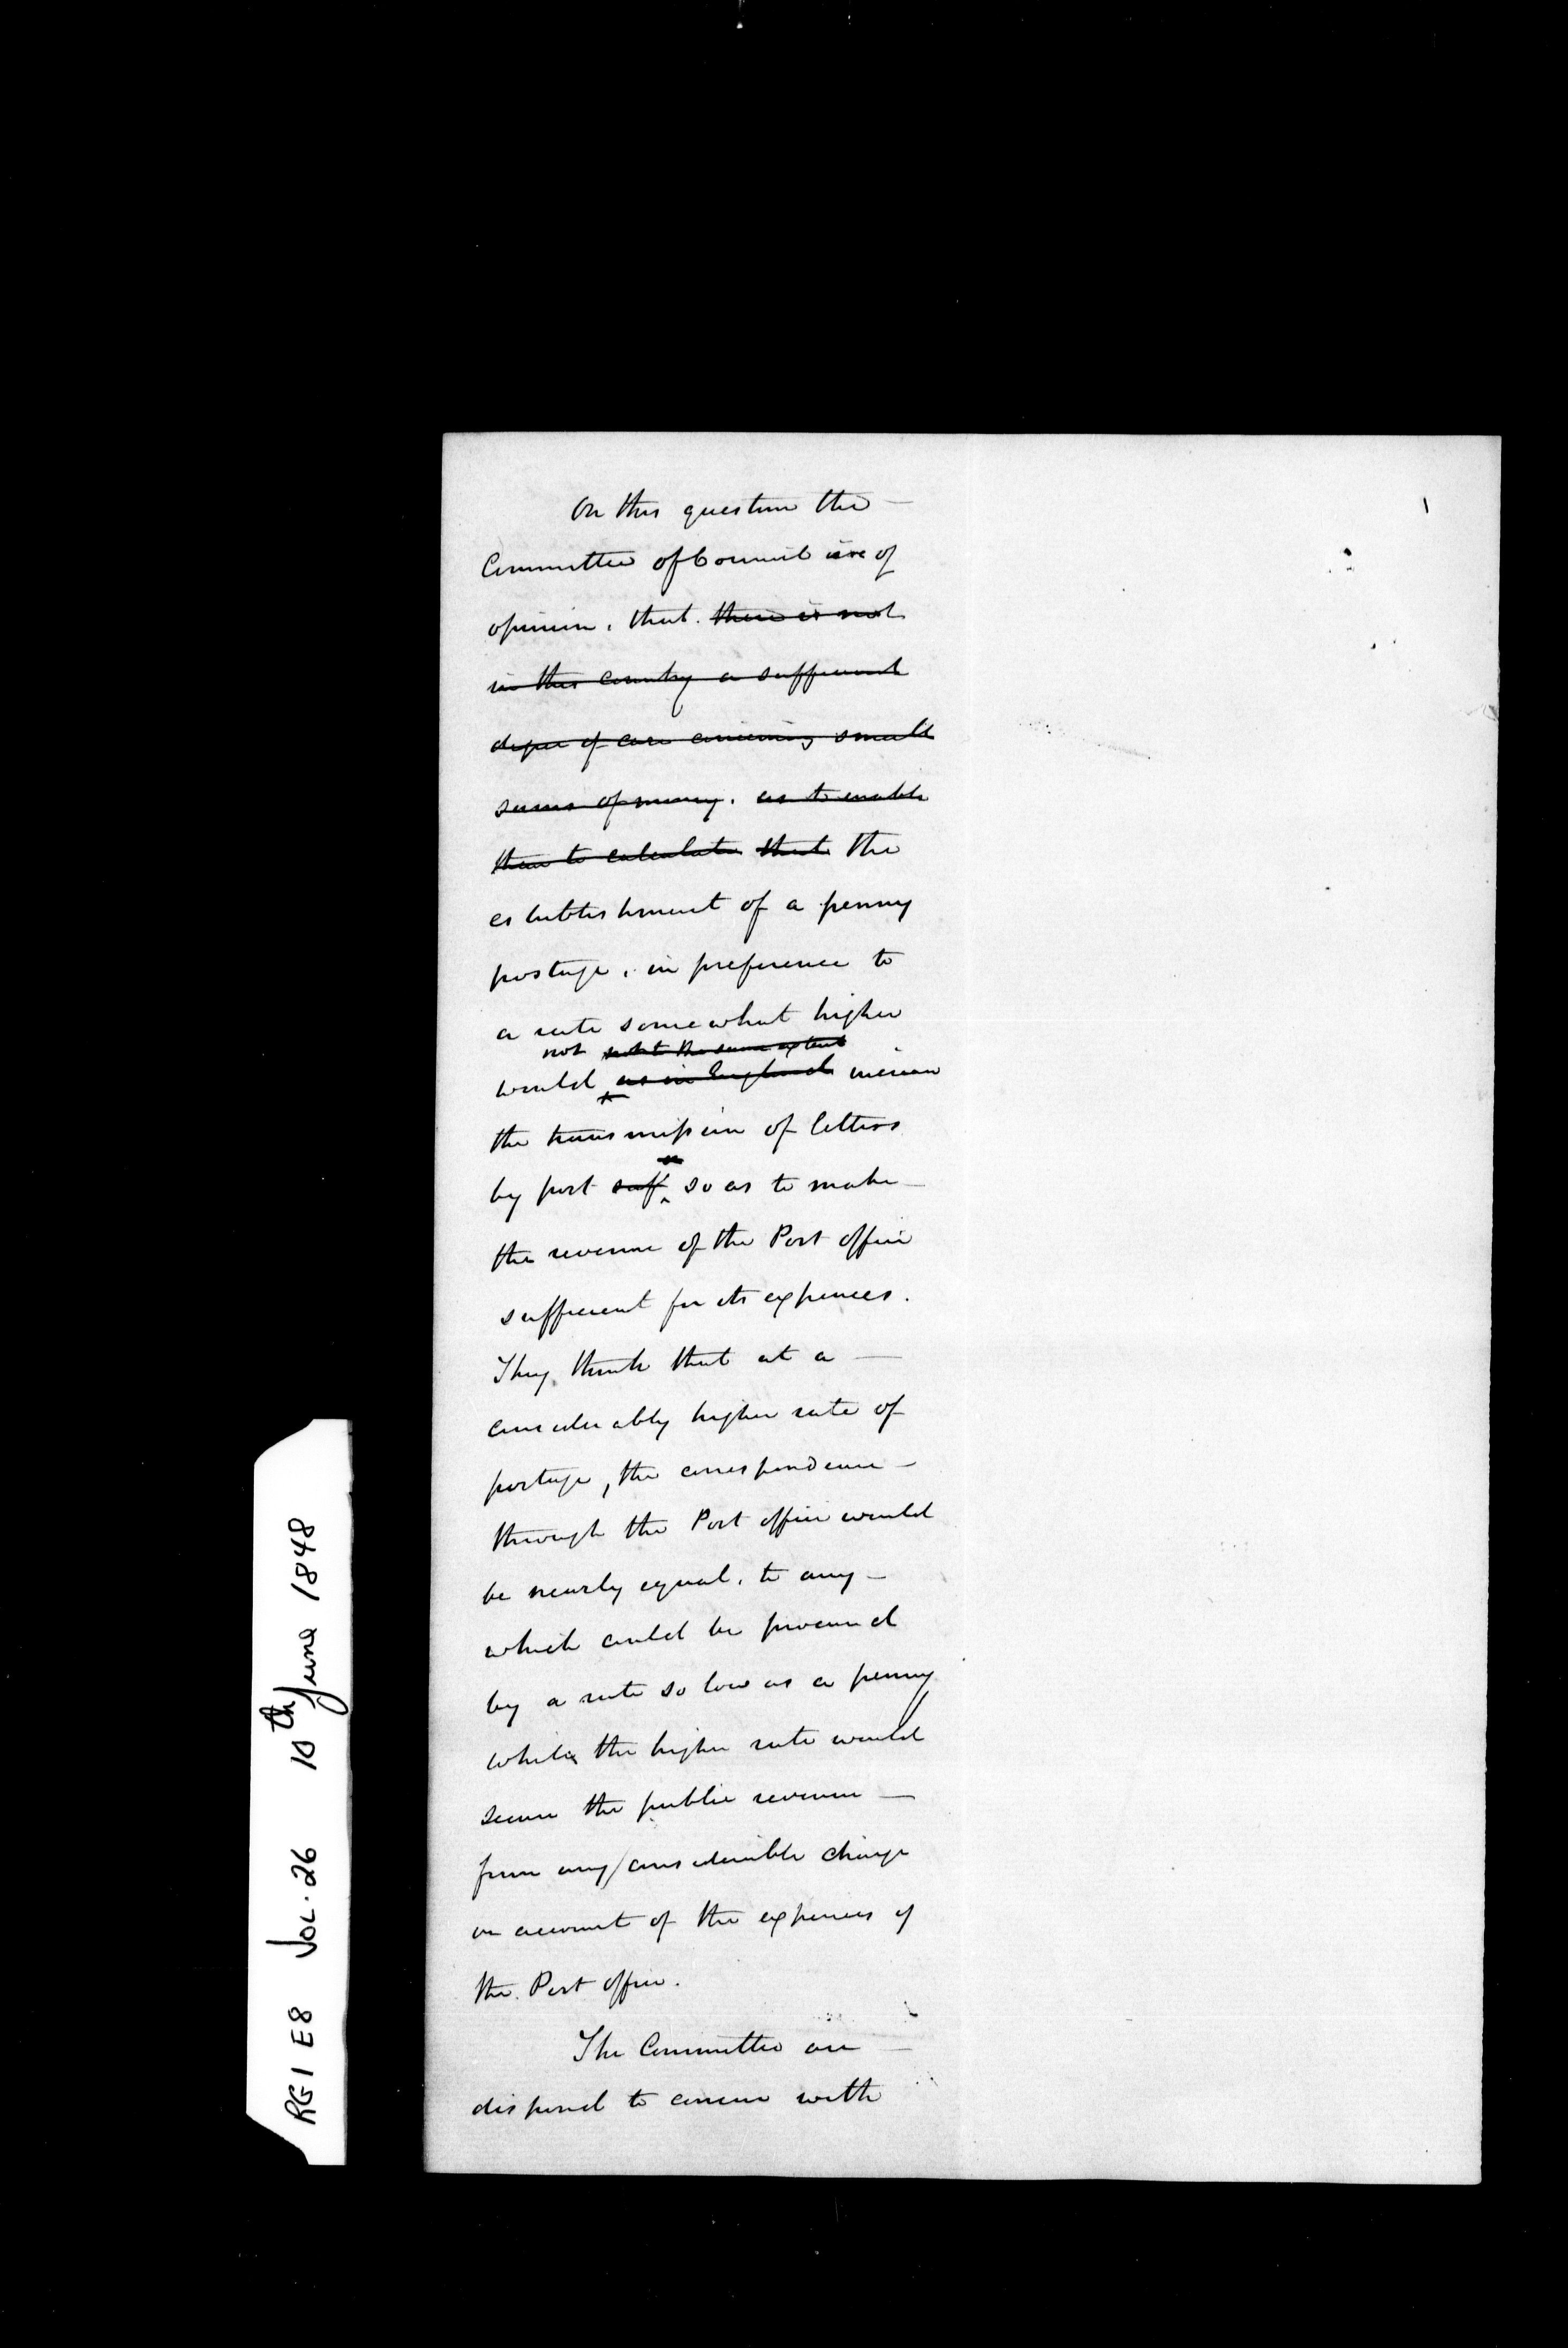 On this question the —
Committee of Council are of
opinion, that there is not
in this country a sufficient
degree of care concerning small
sums of money, as to enable
them to calculate that the
establishment of a penny
postage, in preference to
a rate somewhat higher
not not to the same extent
would as in England increase
the transmission of letters
by post suff so as to make —
the revenue of the Post office
sufficient for its expences.
They think that at a —
considerably higher rate of
postage, the correspondence —
through the Post office would
be nearly equal, to any —
which could be procured
by a rate so low as a penny
while the higher rate would
secure the public revenue —
from any considerable charge
on account of the expences of
the Post office.
The Committee are —
disposed to concur with
1
RG1 E8 VOL. 26 10th June 1848